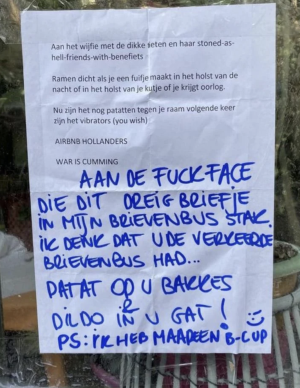 Aan het wijfie met de dikke teten en haar stoned-as-
hell-friends-with-benefiets
Ramen dicht als je een fuifje maakt in het holst van de
nacht of in het holst van je kutje of je krijgt oorlog.
Nu zijn het nog patatten tegen je raam volgende keer
zijn het vibrators (you wish)
AIRBNB HOLLANDERS
WAR IS CUMMING
AAN DE FUCKFACE
DIE DIT DREIGBRIEFJE
IN MIJN BRIEVENBUS STAK.
IK DENK DAT U DE VERKEERDE
BRIEVENBUS HAD...
PATAT OP U BAKKES
&
DILDO IN U GAT! :)
PS: IK HEB MAAR EEN B-CUP